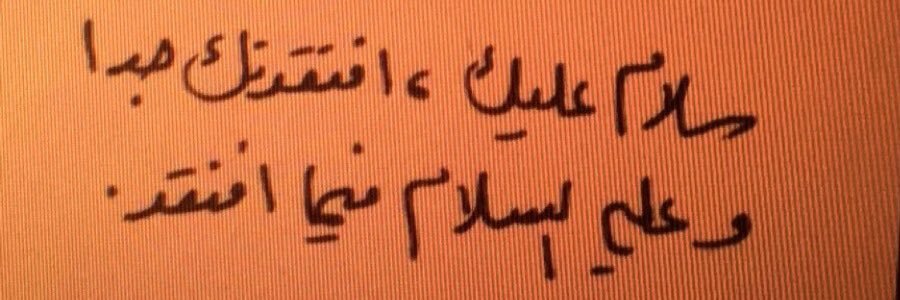 سلام عليك، افتقدتك جدا
وعلي السلام فيما افتقد.